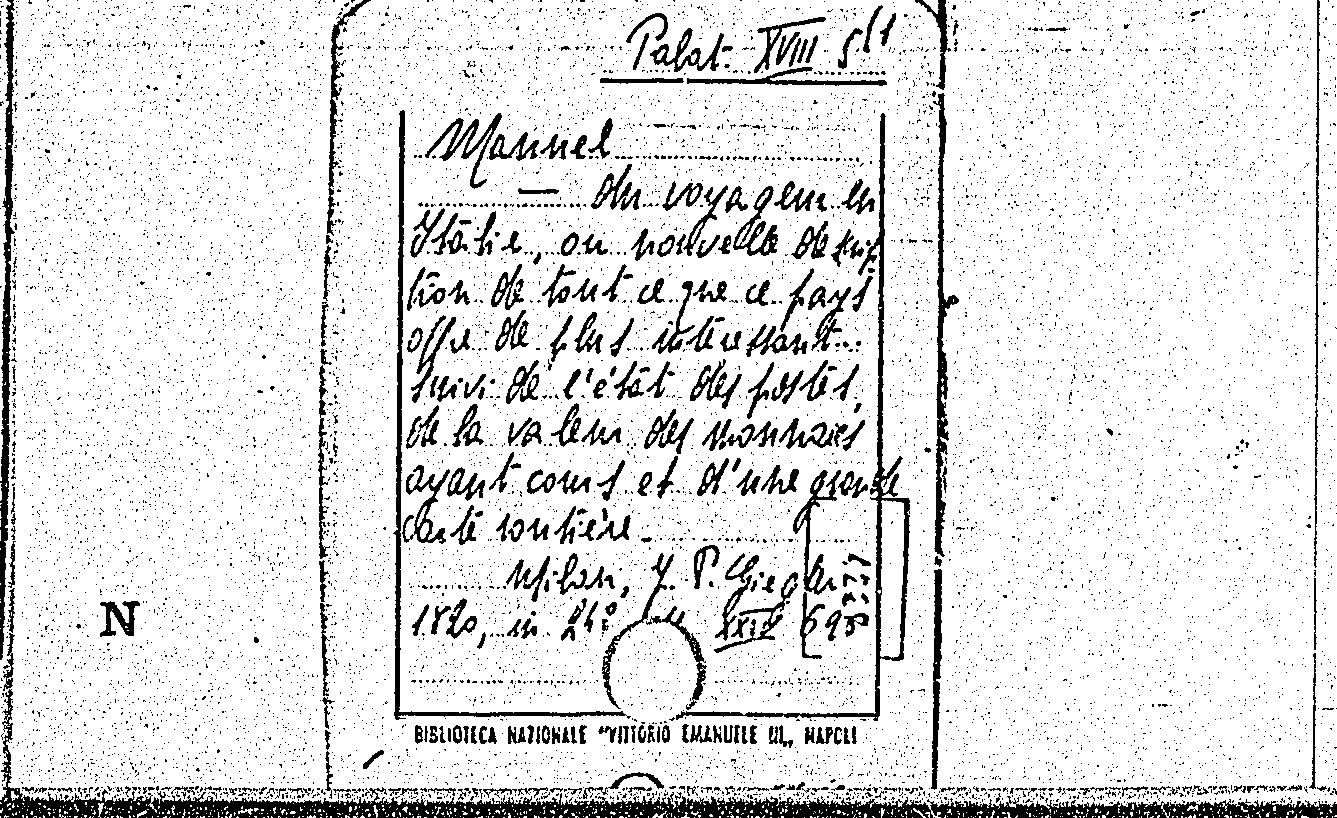 Palat. XVIII 511
Manuel
— du voyageur en
Italie, ou nouvelle descrip
tion de tout ce que ce pays
offre de plus intéressant...
suivi de l'état des postes,
de la valeur des monnaies
ayant cours et d'une grande
carte routière.
Milan, J. P. Giegler
1820, in 24° XXIV 695
N
BIBLIOTECA NAZIONALE "VITTORIO EMANUELE III„ NAPOLI